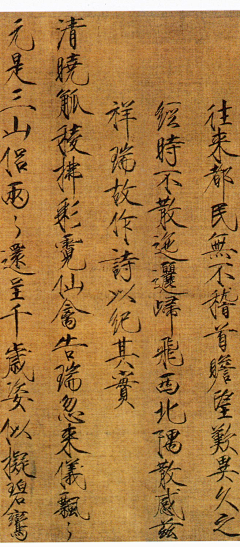 往來都民無不稽首瞻望歎異久之
經時不散迤邐歸飛西北隅散感茲
祥瑞故作詩以紀其實
清曉觚稜拂彩霓仙禽告瑞忽來儀飄〻
元是三山侶兩〻還呈千歲姿似擬碧鸞